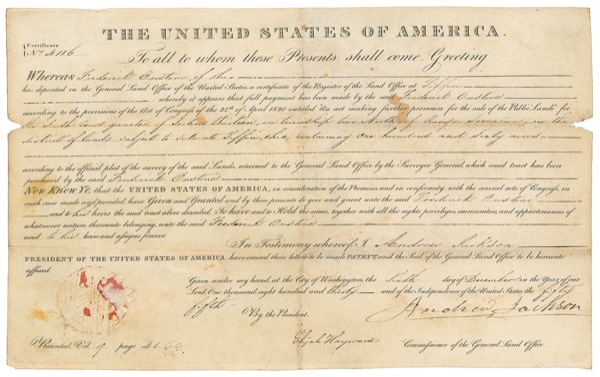 THE UNITED STATES OF AMERICA.
Certificate
No. 4116
To all to whom these Presents shall come, Greeting
Whereas Frederick of Ohio
has deposited in the General Land Office of the United States, a certificate of the Register of the Land Office at Tiffin
whereby it appears that full payment has been made by the said Frederick
according to the provisions of the Act of Congress of the 24th of April 1820 entitled "An act making further provision for the sale of the Public Lands" for
the South East quarter of section thirteen, in township two North, of Range Seventeen, in the
district of lands subject to sale at Tiffin, Ohio, containing one hundred and sixty acres
according to the official plat of the survey of the said Lands, returned to the General Land Office by the Surveyor General, which said tract has been
purchased by the said Frederick
Now Know Ye, that the UNITED STATES OF AMERICA, in consideration of the Premises, and in conformity with the several acts of Congress, in
such case made and provided, have Given and Granted and by these presents do give and grant unto the said Frederick
and to his heirs the said tract above described, To have and to Hold the same, together with all the rights, privileges, immunities, and appurtenances of
whatsoever nature, thereunto belonging, unto the said Frederick
and to his heirs and assigns forever
In Testimony whereof, I Andrew Jackson
PRESIDENT OF THE UNITED STATES OF AMERICA, have caused these letters to be made PATENT, and the Seal of the General Land Office to be hereunto
affixed.
Given under my hand, at the City of Washington, the sixth day of December in the Year of our
Lord, One thousand, eight hundred and thirty and of the Independence of the United States the fifty
fifth
By the President.
Andrew Jackson
Elijah Hayward Commissioner of the General Land Office.
Recorded, Vol 9 page 41